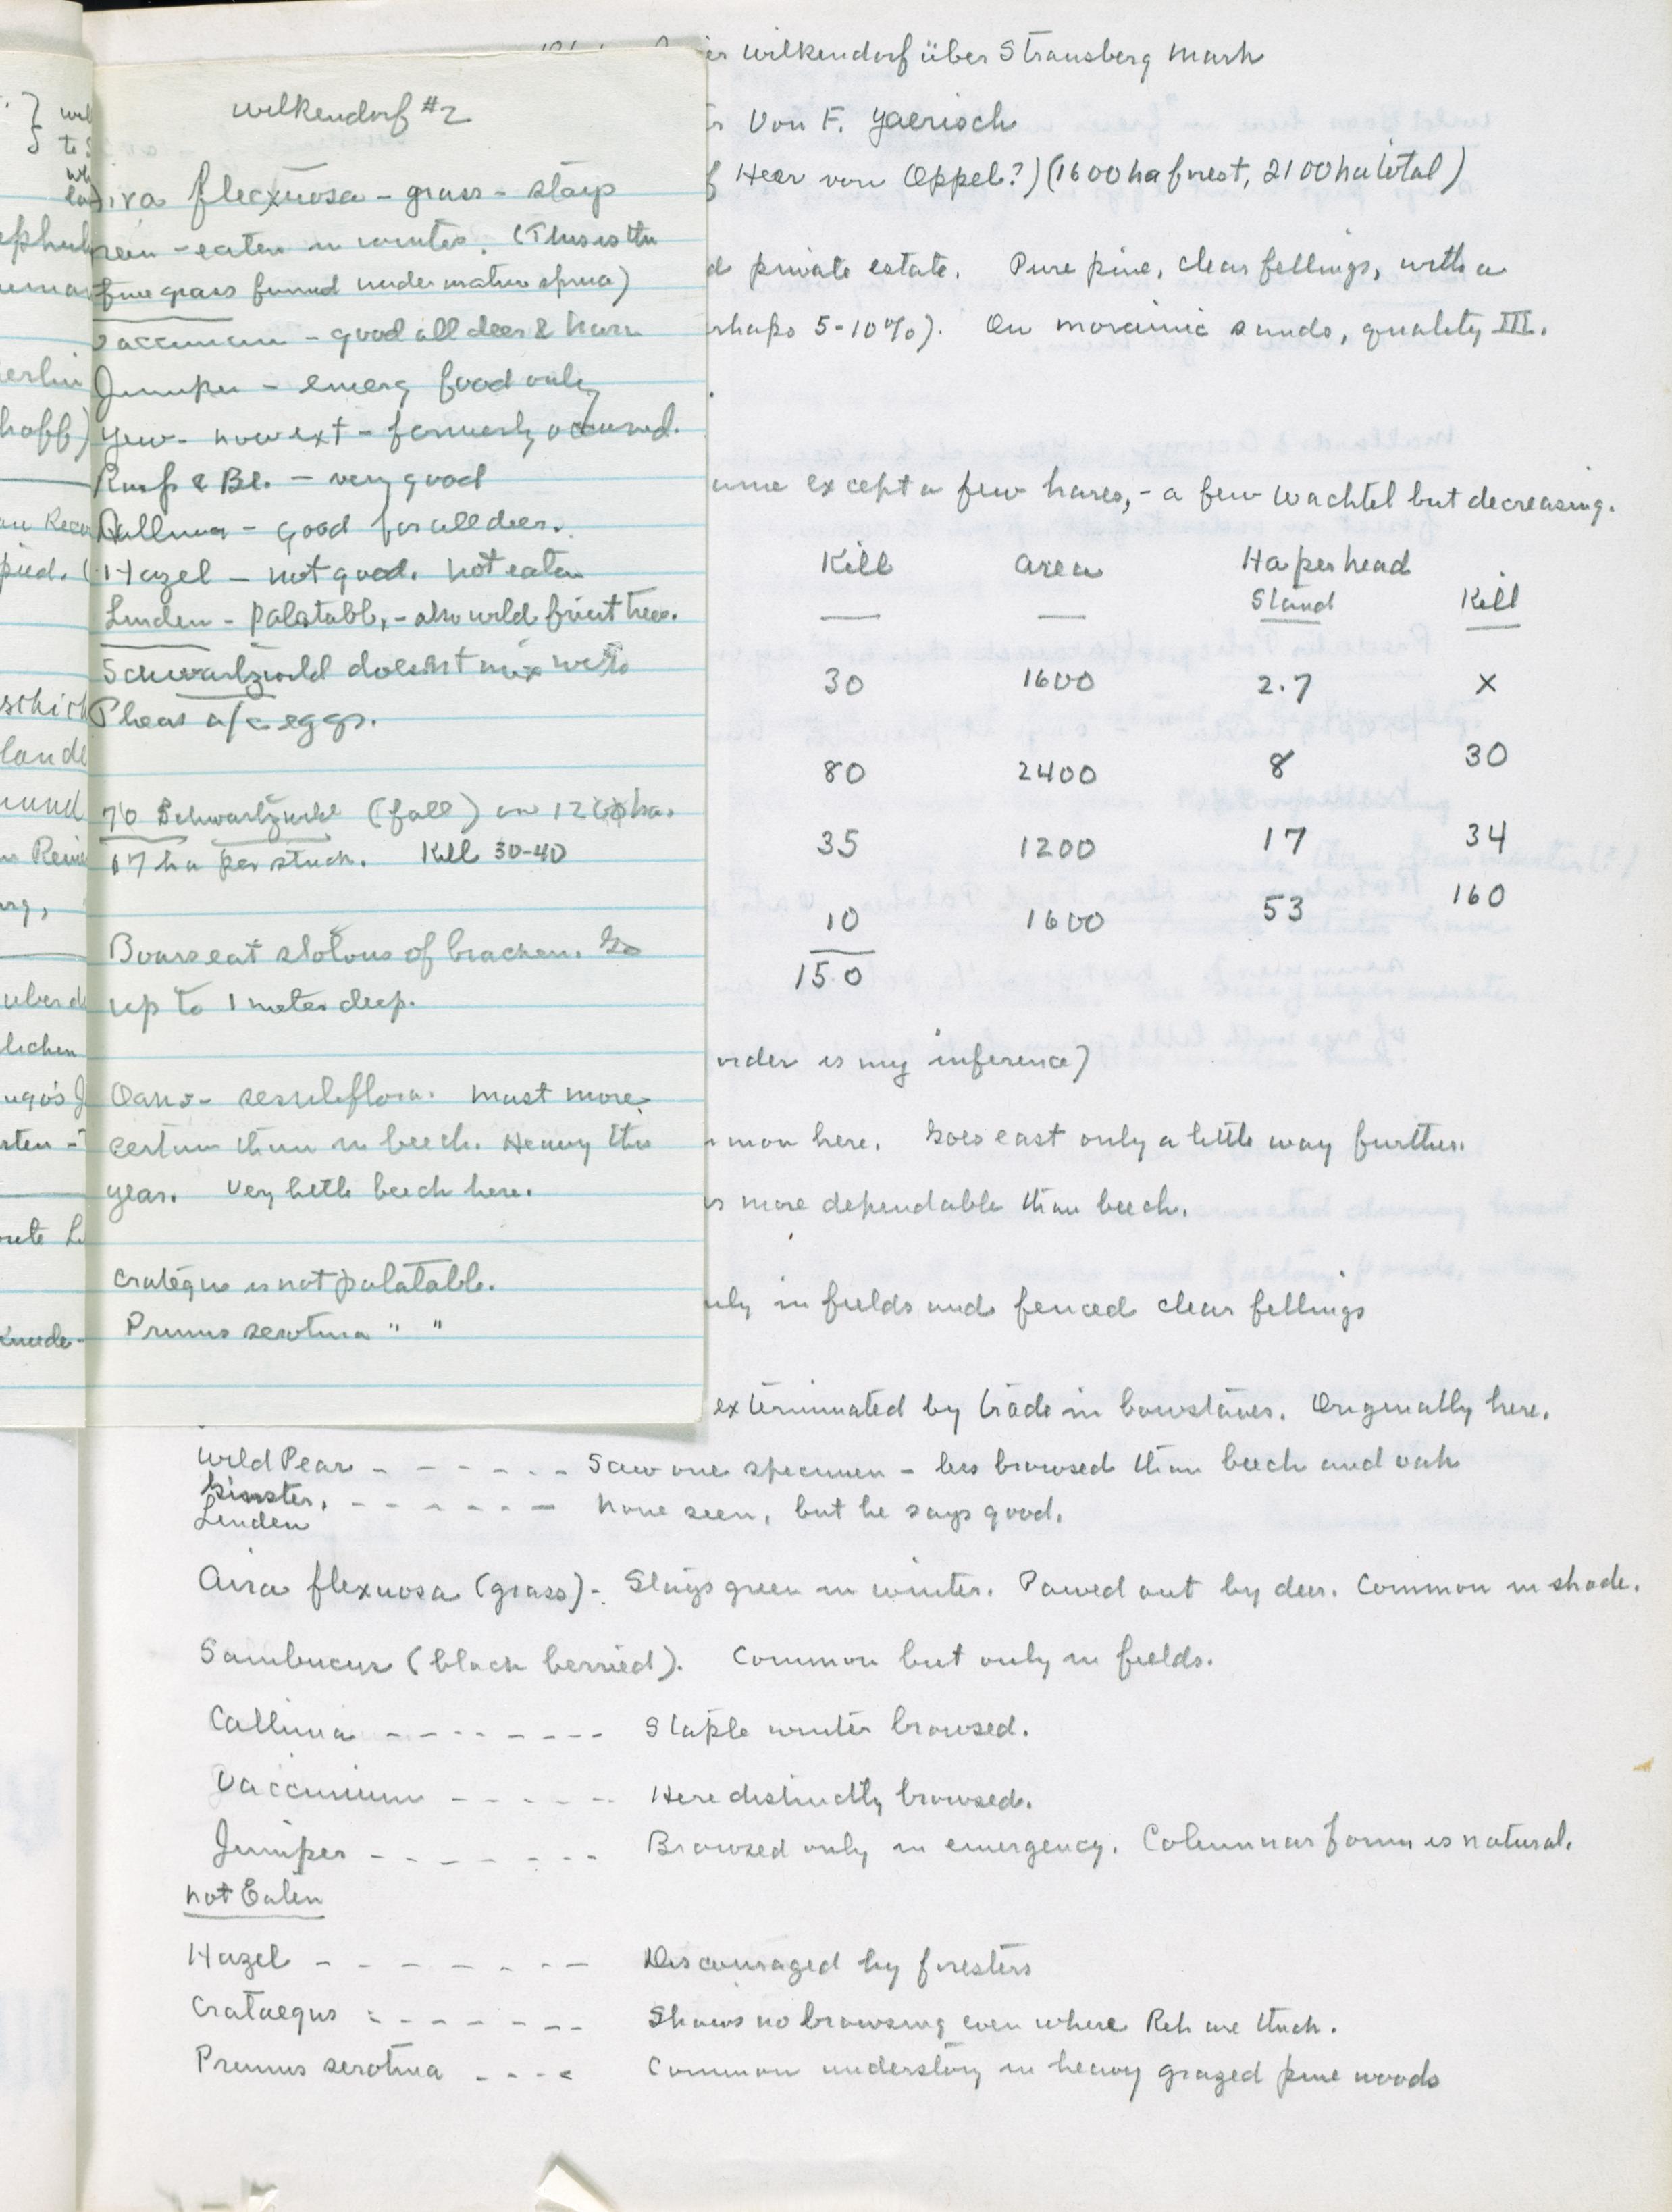 Wilkendorf #2
flexuosa - grass - stays
- eaten in winter. (This is the
fine grass found under mature spruce)
Vaccinium - good all deer & hare
Juniper - emerg food only
Yew - now ext - formerly occurred.
Rasp & Bl. - very good
Calluna - good for all deer.
Hazel - not good. not eaten
Linden - palatable, - also wild fruit trees.
Schwartzwild doesn't mix with
Pheas a/c eggs.
70 Schwartzwild (fall) on 1200 ha.
17 ha per stuck. Kill 30-40
Boars eat stolons of bracken. Go
up to 1 meter deep.
Oaks - sessileflora. Mast more
certain than in beech. Heavy this
year. Very little beech here.
Crategus is not palatable.
Prunus serotina " "
Wilkendorf über Strausberg Mark
Von F. Jaerisch
Herr von Oppel?) (1600 ha forest, 2100 ha total)
private estate. Pure pine, clear fellings, with a
5-10%). On morainic sands, quality III.
except a few hares, - a few Wachtel but decreasing.
Kill Area Ha per head
Stand Kill
30 1600 2.7 x
80 2400 8 30
35 1200 17 34
10 1600 53 160
150
order is my inference)
here. Goes east only a little way further.
more dependable than beech.
in fields and fenced clear fellings
exterminated by trade in bowstaves. Originally here.
Wild Pear - - - - - - Saw one specimen - less browsed than beech and oak
Ginster,
Linden - - - - - - - None seen, but he says good.
Aira flexuosa (grass) - Stays green in winter. Pawed out by deer. Common in shade.
Sambucus (black berried). Common but only in fields.
Calluna - - - - - - - - Staple winter browsed.
Vaccinium - - - - - - Here distinctly browsed.
Juniper - - - - - - - Browsed only in emergency. Columnar form is natural.
Not Eaten
Hazel - - - - - - - - Discouraged by foresters
Crataegus - - - - - - - Shows no browsing even where Reh are thick.
Prunus serotina - - - - Common understory in heavy grazed pine woods